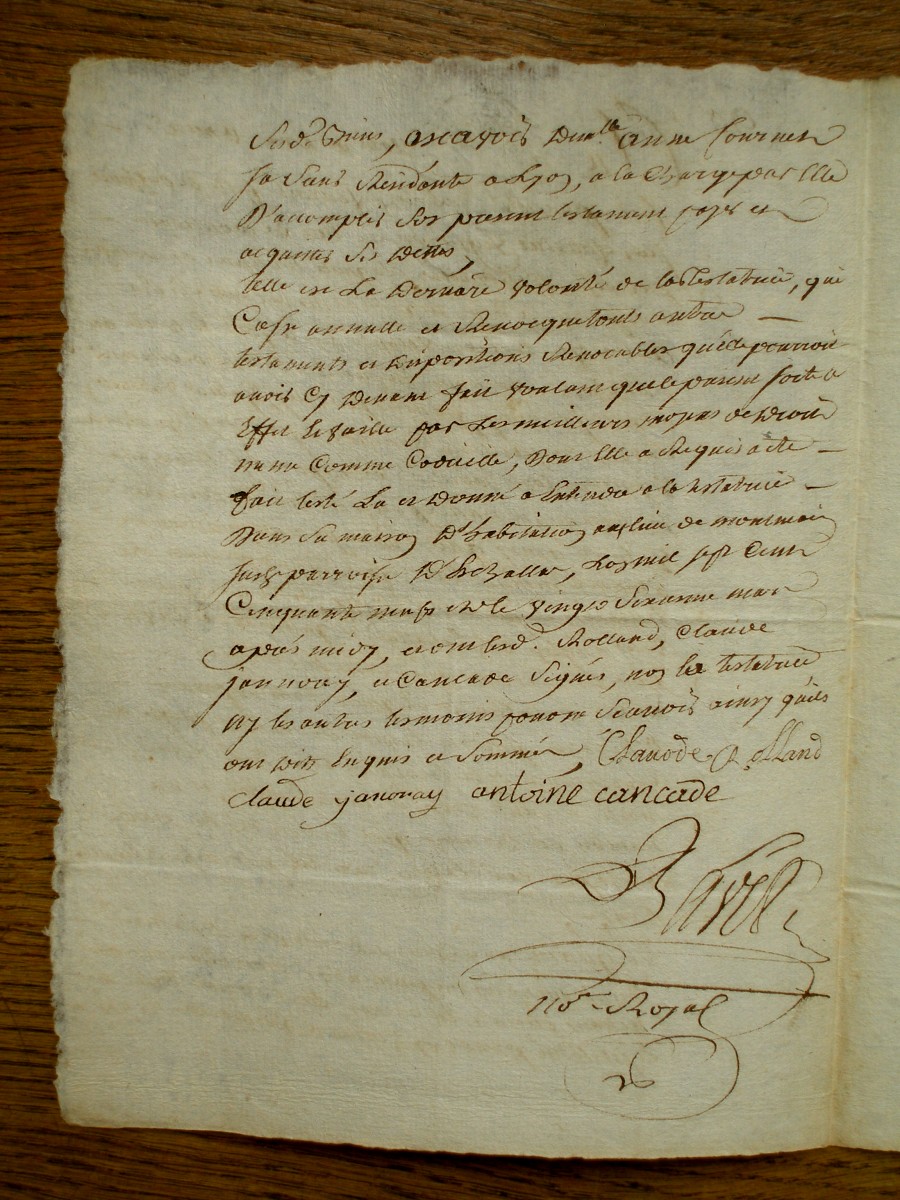 Sesd. biens, ascavoir Dem.lle anne Tournet
sa sœur Residante a Lyon, a la Charge par Elle
D'accomplir son present testament payer et
acquitter ses Dettes,
telle est La Derniere volonté de la Testatrice, qui
Casse annulle et Revocque touts autres
testaments et Dispositions Revocables qu'elle pourroit
avoir Cy Devant fait voulant que le present sorte a
Effet Et vaille par Les meilleurs moyens de Droit
meme Comme Codicille, Dont Elle a Requis acte
fait testé Lu et Donné a Entendre a la testatrice
Dans sa maison D'habitation au lieu de
susd. parroisse D'Echallas, L'an mil sept Cent
Cinquante neuf et le vingt Sixieme mars
après midy, et ont lesd. Rolland, Claude
janvray, et Cancade Signés, non la testatrice
ny les autres temoins pour ne Scavoir ainsy qu'ils
ont Dit Enquis et Sommés, Clauode Rolland
claude janvray antoine cancade
No.re Royal